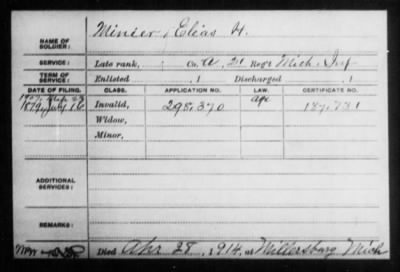 NAME OF SOLDIER: Minier, Elias H.
SERVICE: Late rank, Co. A, 21 Reg't Mich. Inf
TERM OF SERVICE: Enlisted , 1 Discharged , 1
DATE OF FILING. CLASS. APPLICATION NO. LAW. CERTIFICATE NO.
1907, 
1879, July 16 Invalid, 298,370 Age 187,731
Widow,
Minor,
ADDITIONAL SERVICES:
REMARKS:
Died Apr 28, 1914, at Millersburg Mich